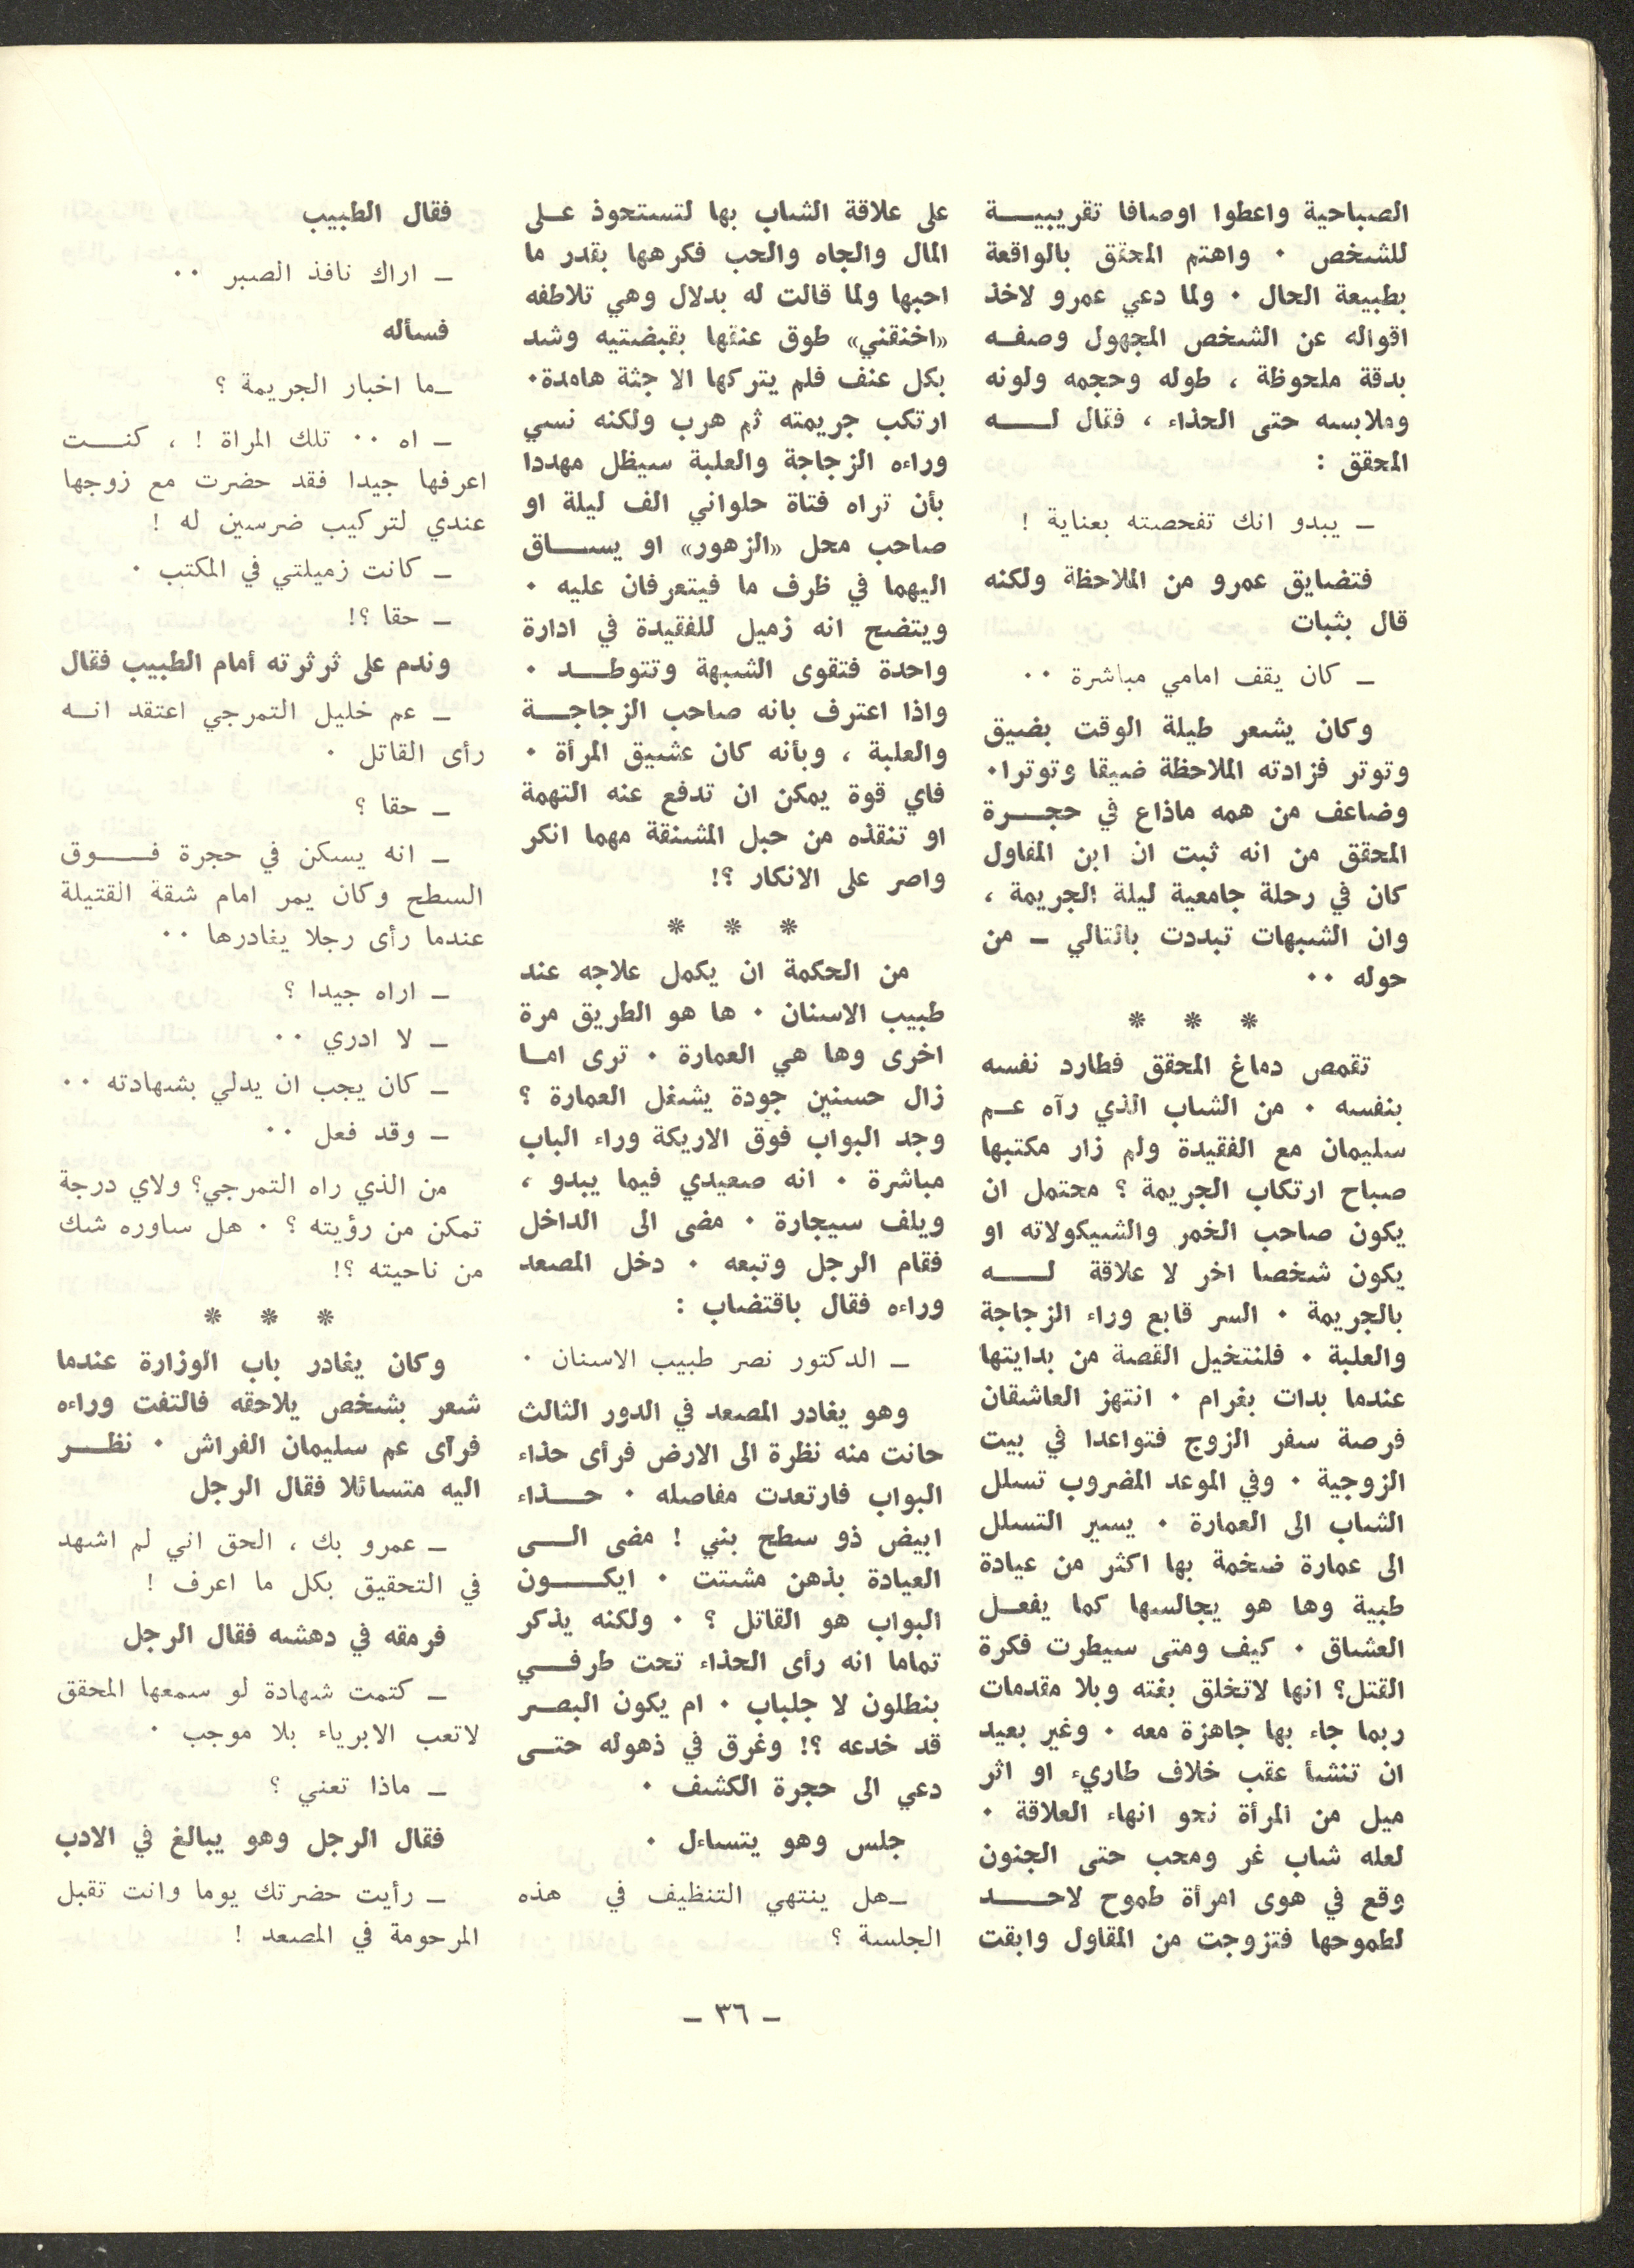 الصباحية واعطوا اوصافا تقريبيــــة
للشخص ٠ واهتم المحقق بالواقعة
بطبيعة الحال ٠ ولما دعي عمرو لاخذ
اقواله عن الشخص المجهول وصفـه
بدقة ملحوظة ، طوله وحجمه ولونه
وملابسه حتى الحذاء ، فقال لــــه
المحقق :
ــ يبدو انك تفحصته بعناية !
فتضايق عمرو من الملاحظة ولكنه
قال بثبات
ــ كان يقف امامي مباشرة ٠٠
وكان يشعر طيلة الوقت بضيق
وتوتر فزادته الملاحظة ضيقا وتوترا٠
وضاعف من همه ماذاع في حجــرة
المحقق من انه ثبت ان ابن المقاول
كان في رحلة جامعية ليلة الجريمة ،
وان الشبهات تبددت بالتالي ــ من
حوله ٠٠
* * *
تقمص دماغ المحقق فطارد نفسه
بنفسه ٠ من الشاب الذي رآه عــم
سليمان مع الفقيدة ولم زار مكتبها
صباح ارتكاب الجريمة ؟ محتمل ان
يكون صاحب الخمر والشيكولاته او
يكون شخصا اخر لا علاقة لــــه
بالجريمة ٠ السر قابع وراء الزجاجة
والعلبة ٠ فلنتخيل القصة من بدايتها
عندما بدات بغرام ٠ انتهز العاشقان
فرصة سفر الزوج فتواعدا في بيت
الزوجية ٠ وفي الموعد المضروب تسلل
الشاب الى العمارة ٠ يسير التسلل
الى عمارة ضخمة بها اكثر من عيادة
طبية وها هو يجالسها كما يفعــل
العشاق ٠ كيف ومتى سيطرت فكرة
القتل؟ انها لاتخلق بغته وبلا مقدمات
ربما جاء بها جاهزة معه ٠ وغير بعيد
ان تنشأ عقب خلاف طاريء او اثر
ميل من المرأة نحو انهاء العلاقة ٠
لعله شاب غر ومحب حتى الجنون
وقع في هوى امرأة طموح لاحــــد
لطموحها فتزوجت من المقاول وابقت
على علاقة الشاب بها لتستحوذ عــلى
المال والجاه والحب فكرهها بقدر ما
احبها ولما قالت له بدلال وهي تلاطفه
«اخنقني» طوق عنقها بقبضتيه وشد
بكل عنف فلم يتركها الا جثة هامدة٠
ارتكب جريمته ثم هرب ولكنه نسي
وراءه الزجاجة والعلبة سيظل مهددا
بأن تراه فتاة حلواني الف ليلة او
صاحب محل «الزهور» او يســـاق
اليهما في ظرف ما فيتعرفان عليه ٠
ويتضح انه زميل للفقيدة في ادارة
واحدة فتقوى الشبهة وتتوطــــد ٠
واذا اعترف بانه صاحب الزجاجــــة
والعلبة ، وبأنه كان عشيق المرأة ٠
فاي قوة يمكن ان تدفع عنه التهمة
او تنقذه من حبل المشنقة مهما انكر
واصر على الانكار ؟!
* * *
من الحكمة ان يكمل علاجه عند
طبيب الاسنان ٠ ها هو الطريق مرة
اخرى وها هي العمارة ٠ ترى امــا
زال حسنين جودة يشغل العمارة ؟
وجد البواب فوق الاريكة وراء الباب
مباشرة ٠ انه صعيدي فيما يبدو ،
ويلف سيجارة ٠ مضى الى الداخل
فقام الرجل وتبعه ٠ دخل المصعد
وراءه فقال باقتضاب :
ــ الدكتور نصر طبيب الاسنان ٠
وهو يغادر المصعد في الدور الثالث
حانت منه نظرة الى الارض فرأى حذاء
البواب فارتعدت مفاصله ٠ حــــذاء
ابيض ذو سطح بني ! مضى الــــى
العيادة بذهن مشتت ٠ ايكــــون
البواب هو القاتل ؟ ٠ ولكنه يذكر
تماما انه رأى الحذاء تحت طرفـــي
بنطلون لا جلباب ٠ ام يكون البصـر
قد خدعه ؟! وغرق في ذهوله حتــى
دعي الى حجرة الكشف ٠
جلس وهو يتساءل ٠
ــهل ينتهي التنظيف في هذه
الجلسة ؟
فقال الطبيب
ــ اراك نافذ الصبر ٠٠
فسأله
ــما اخبار الجريمة ؟
ــ اه ٠٠ تلك المراة ! ، كنــــت
اعرفها جيدا فقد حضرت مع زوجها
عندي لتركيب ضرسين له !
ــ كانت زميلتي في المكتب ٠
ــ حقا ؟!
وندم على ثرثرته أمام الطبيب فقال
ــ عم خليل التمرجي اعتقد انــه
رأى القاتل ٠
ــ حقا ؟
ــ انه يسكن في حجرة فــــوق
السطح وكان يمر امام شقة القتيلة
عندما رأى رجلا يغادرها ٠٠
ــ اراه جيدا ؟
ــ لا ادري ٠٠
ــ كان يجب ان يدلي بشهادته ٠٠
ــ وقد فعل ٠٠
من الذي راه التمرجي؟ ولاي درجة
تمكن من رؤيته ؟ ٠ هل ساوره شك
من ناحيته ؟!
* * *
وكان يغادر باب الوزارة عندما
شعر بشخص يلاحقه فالتفت وراءه
فرآى عم سليمان الفراش ٠ نظــــر
اليه متسائلا فقال الرجل
ــ عمرو بك ، الحق اني لم اشهد
في التحقيق بكل ما اعرف !
فرمقه في دهشه فقال الرجل
ــ كتمت شهادة لو سمعها المحقق
لاتعب الابرياء بلا موجب ٠
ــ ماذا تعني ؟
فقال الرجل وهو يبالغ في الادب
ــ رأيت حضرتك يوما وانت تقبل
المرحومة في المصعد !
ــ ٣٦ ــ